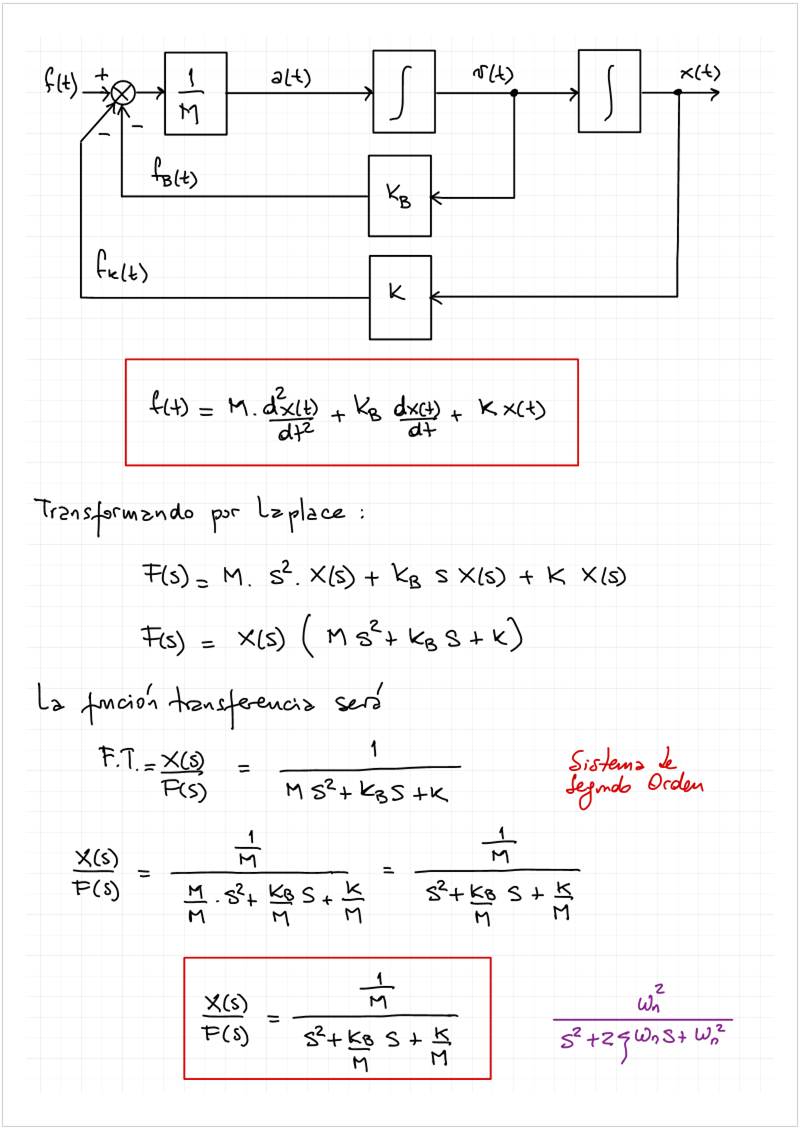 f(t) + 1/M a(t) ∫ v(t) ∫ x(t)
− −
f_B(t) K_B
f_K(t) K
f(t) = M · d²x(t)/dt² + K_B dx(t)/dt + K x(t)
Transformando por Laplace :
F(s) = M · s² · X(s) + K_B s X(s) + K X(s)
F(s) = X(s) ( M s² + K_B s + K )
La función transferencia será
F.T. = X(s)/F(s) = 1/(M s² + K_B s + K)
Sistema de
Segundo Orden
X(s)/F(s) = (1/M)/(M/M · s² + K_B/M s + K/M) = (1/M)/(s² + K_B/M s + K/M)
X(s)/F(s) = (1/M)/(s² + K_B/M s + K/M)
ωn²/(s² + 2ζωn s + ωn²)